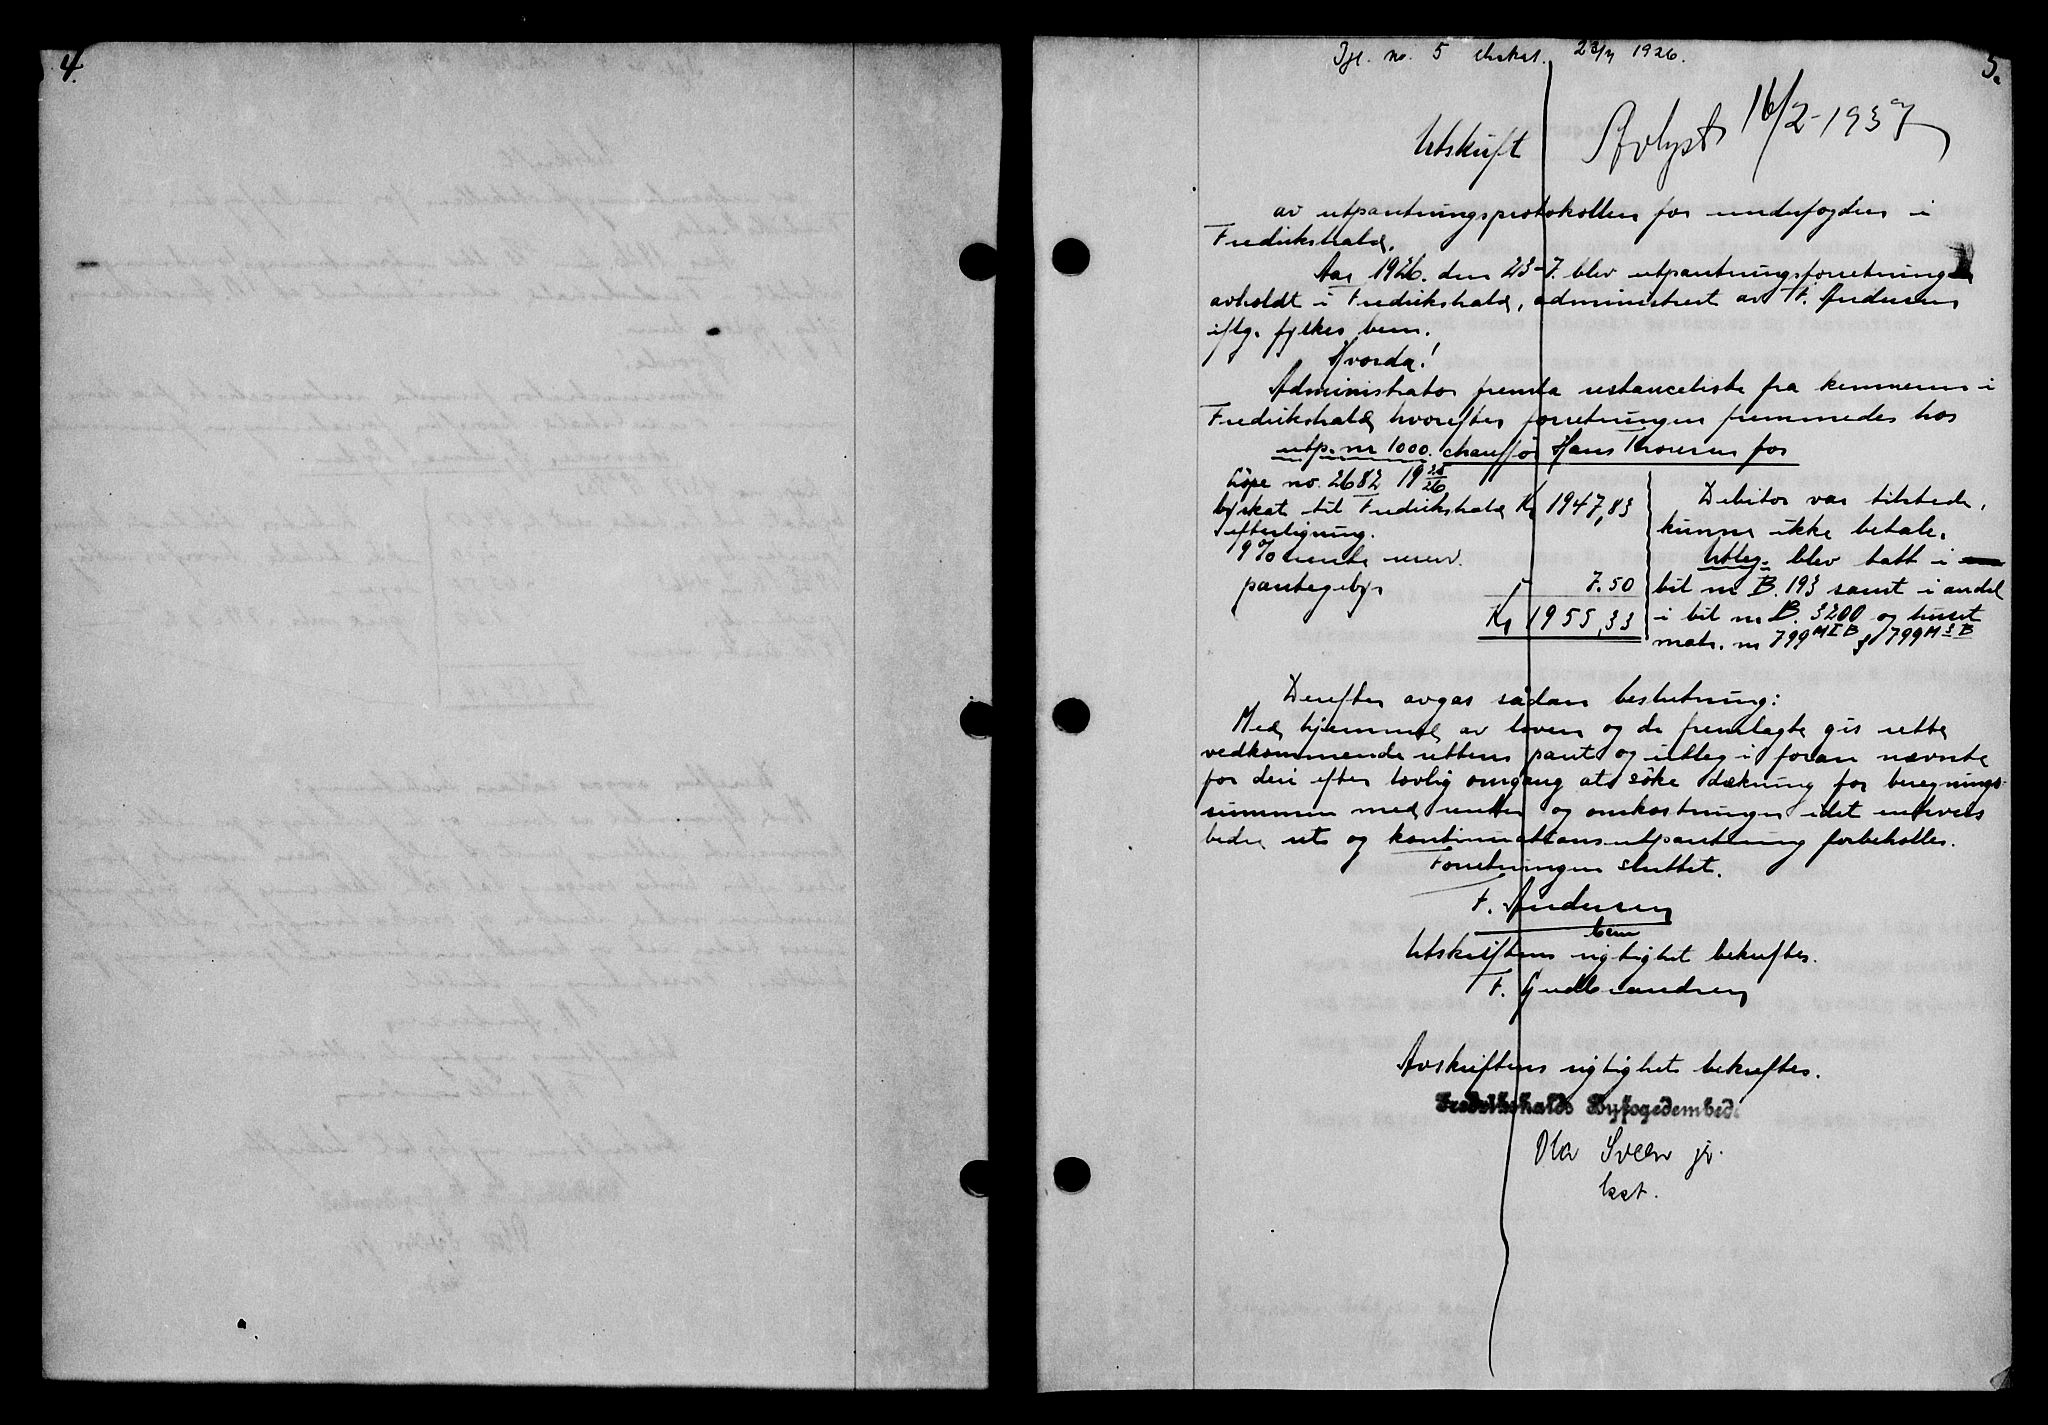 4.
5.
Dgl. no. 5 ekskl. 23/7 1926.
Utskrift Avlyst 16/2-1937
av utpantningsprotokollen for underfogden i
Fredrikshald.
Aar 1926. den 23-7. blev utpantningsforretning
avholdt i Fredrikshald, administrert av F. Andersen
iflg. fylkes bem.
Hvorda!
Administrator fremla restanceliste fra kemneren i
Fredrikshald hvorefter forretningen fremmedes hos
utp. nr 1000. chauffør Hans Thoresen for
Løpe no. 2682 19 25/26
byskat til Fredrikshald Kr 1947,83
efterligning.
9% rente
pantegebyr " 7.50
Kr 1955,33
Debitor var tilstede,
kunne ikke betale.
Utleg. blev tatt i
bil nr B. 193 samt i andel
i bil nr B. 3200 og huset
matr. nr 799 M I B & 799 M 3 B
Derefter avgas sådan beslutning:
Med hjemmel av loven og de fremlagte gis rette
vedkommende rettens pant og utleg i foran nævnte
for deri efter lovlig omgang at søke dækning for beregnings-
summen med renter og omkostninger idet enhvers
bedre ret og kontinuationsutpantning forbeholdes.
Forretningen sluttet.
F. Andersen
bem
Utskriftens rigtighet bekreftes.
F. Gudbrandsen
Avskriftens rigtighet bekreftes.
Fredrikshalds Byfogedembede
Ola Sveen jr.
kst.